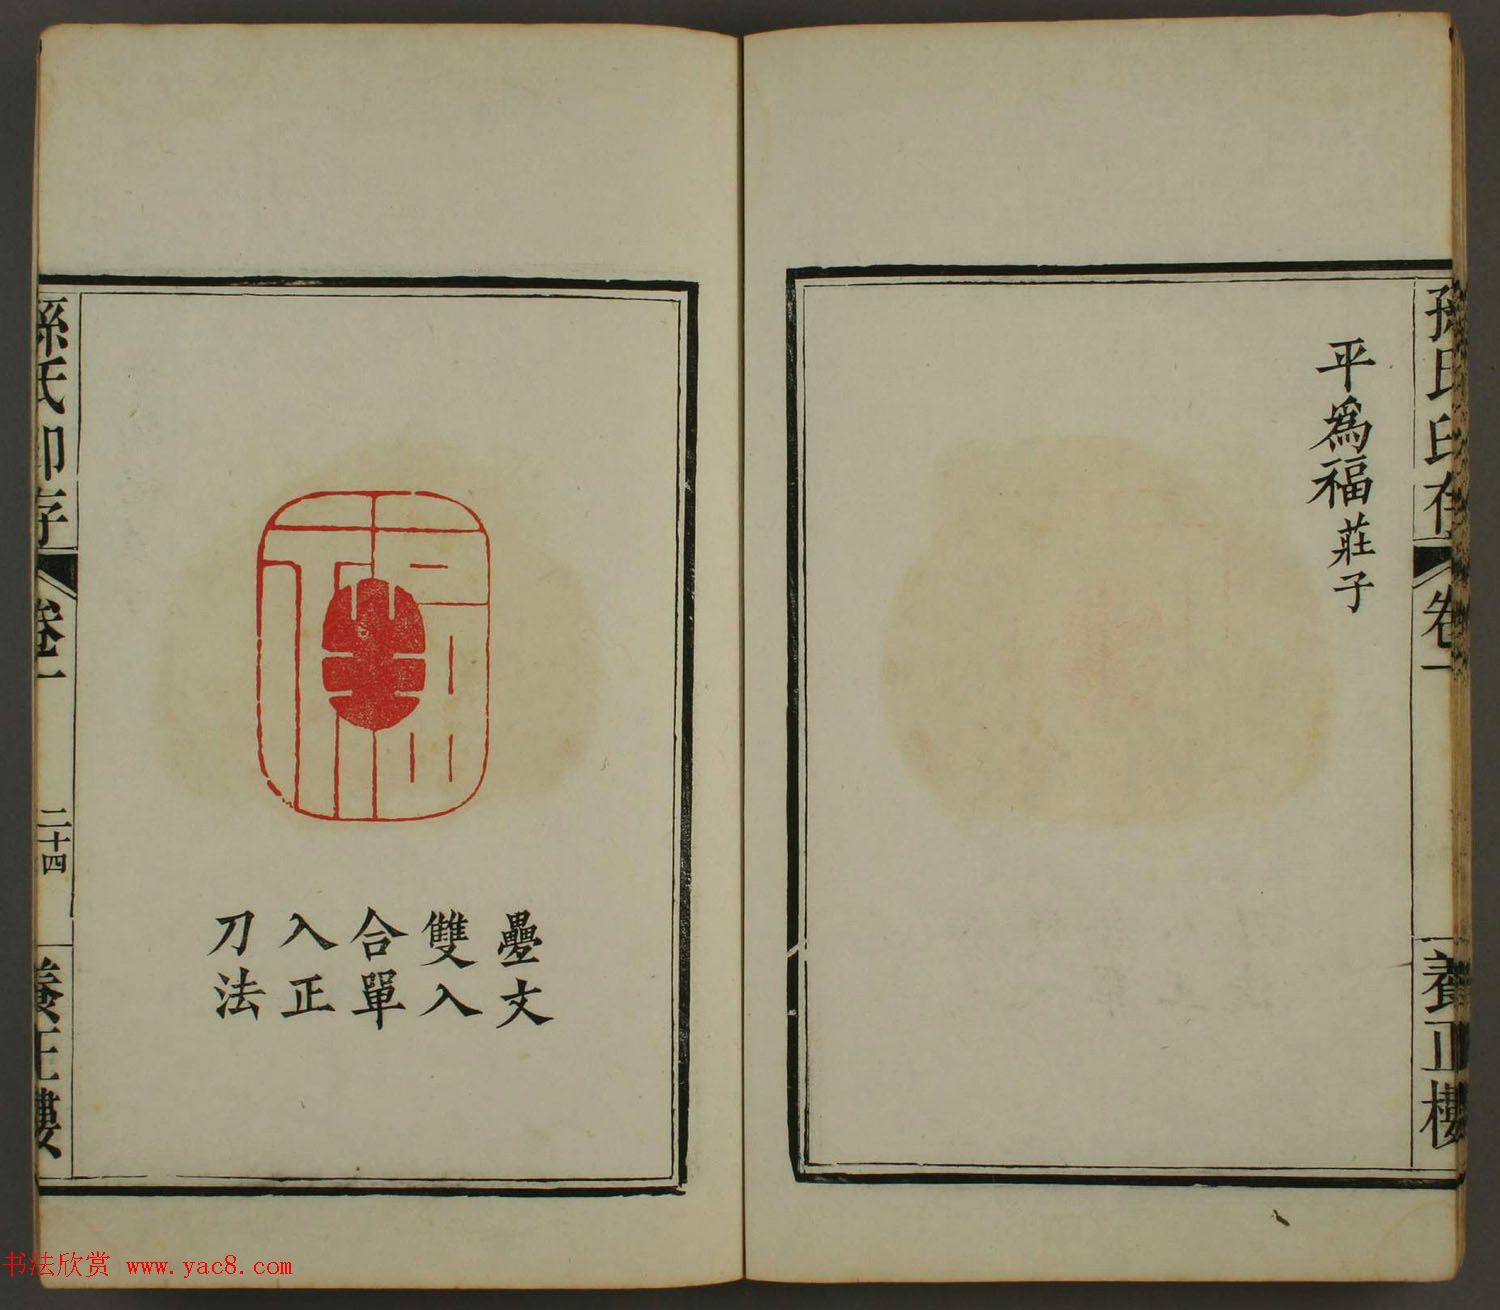 孫氏印存
卷一
養正樓
平爲福莊子
疊文
雙入
合單
入正
刀法
孫氏印存
卷一
二十四
養正樓
书法欣赏 www.yac8.com